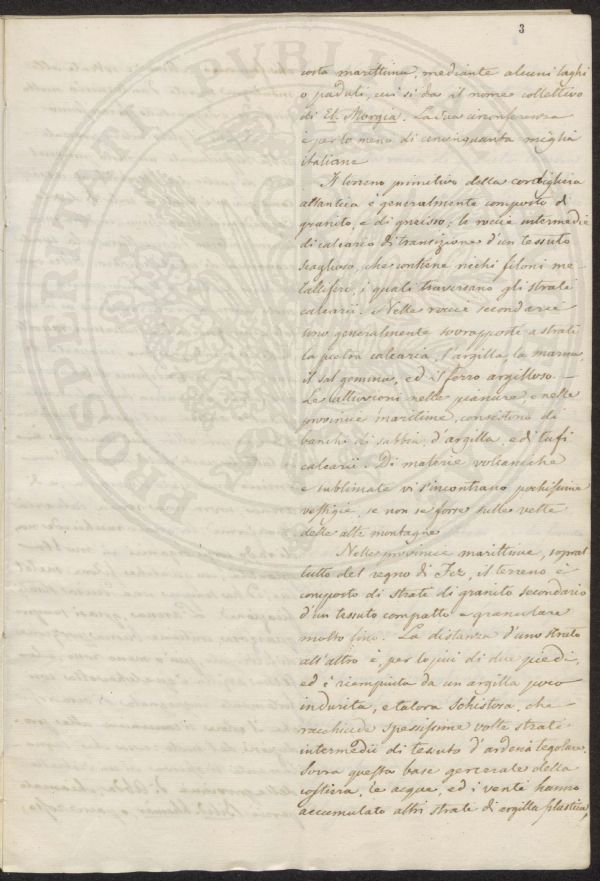 3
costa marittima, mediante alcuni laghi
o paduli, cui si da il nome collettivo
di El-Morgia. La sua circonferenza
è per lo meno di cencinquanta miglia
italiane
Il terreno primitivo della cordigliera
atlantica è generalmente composto di
granito, e di gneisso; le roccie intermedie
di calcario di transizione d'un tessuto
scaglioso, che contiene ricchi filoni me-
talliferi, i quali traversano gli strati
calcarii. Nelle roccie secondarie
sono generalmente sovrapposte a strati
la pietra calcaria, l'argilla, la marna,
il sal gemma, ed il ferro argilloso. -
Le alluvioni nelle pianure, e nelle
provincie maritime, consistono di
banchi di sabbia, d'argilla, e di tufi
calcarii. Di materie volcaniche
e sublimate vi s'incontrano pochissime
vestigie, se non se forse sulle vette
delle alte montagne
Nelle provincie marittime, soprat
tutto del regno di Fez, il terreno è
composto di strati di granito secondario
d'un tessuto compatto e granulare
molto fino. La distanza d'uno strato
all'altro è, per lo più di due piedi,
ed è riempiuta da un argilla poco
indurita, e talora schistosa, che
racchiude spessissime volte strati
intermedii di tessuto d'ardesia tegolare.
Sovra questa base generale della
costiera, le acque, ed i venti hanno
accumulato altri strati di argilla plastica,
PROSPERITATI PUBLICAE